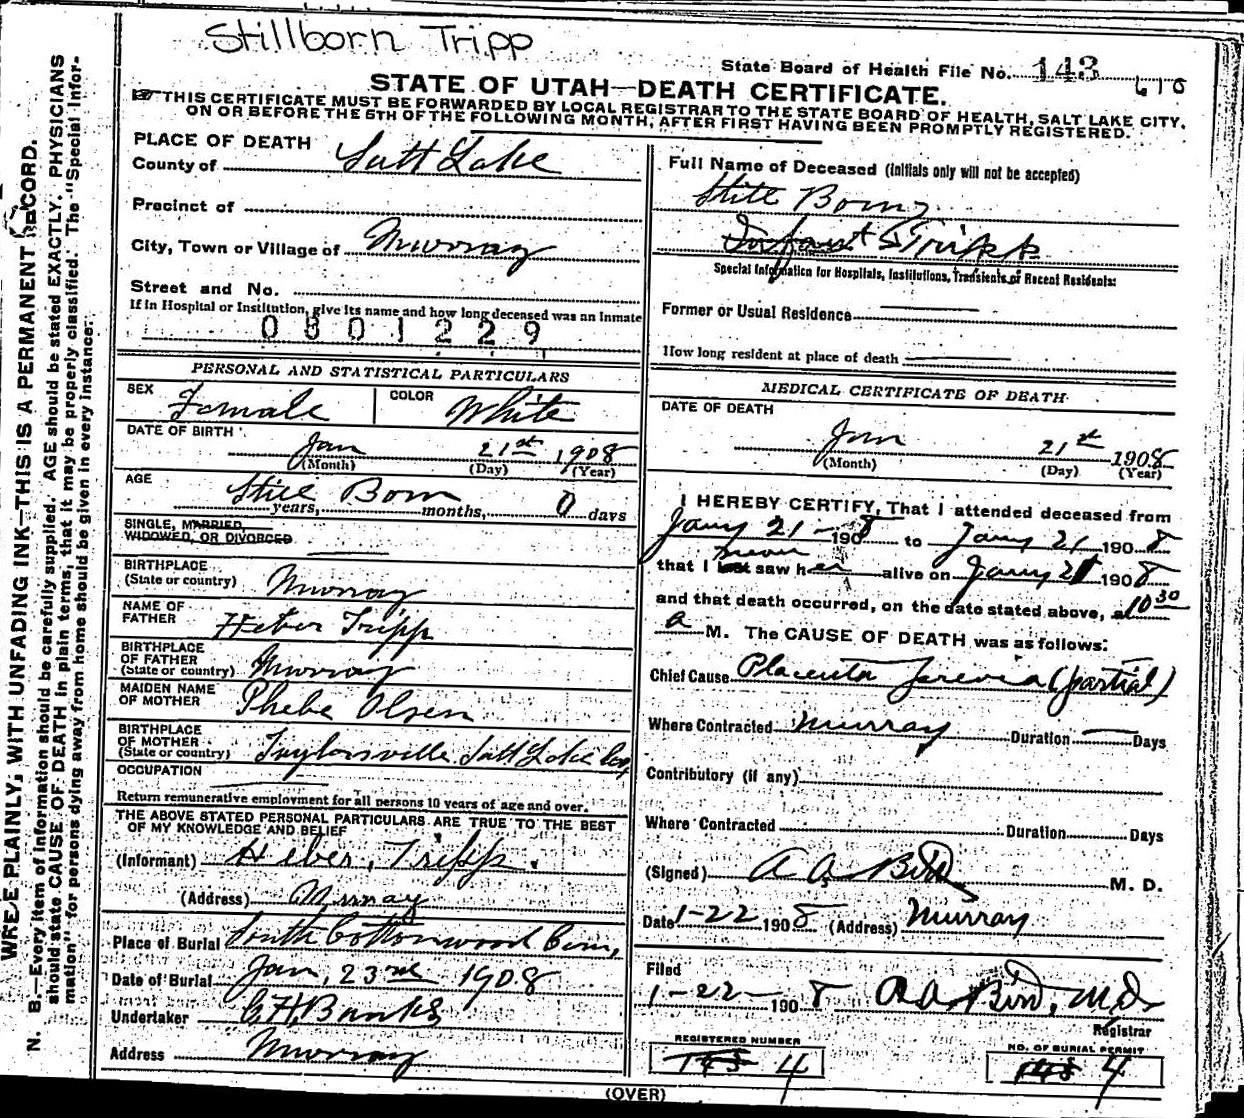 Stillborn Tripp
State Board of Health File No. 143
610
STATE OF UTAH—DEATH CERTIFICATE.
THIS CERTIFICATE MUST BE FORWARDED BY LOCAL REGISTRAR TO THE STATE BOARD OF HEALTH, SALT LAKE CITY,
ON OR BEFORE THE 5TH OF THE FOLLOWING MONTH, AFTER FIRST HAVING BEEN PROMPTLY REGISTERED.
PLACE OF DEATH
County of Salt Lake
Precinct of
City, Town or Village of Murray
Street and No.
If in Hospital or Institution, give its name and how long deceased was an Inmate
0801229
PERSONAL AND STATISTICAL PARTICULARS
SEX Female COLOR White
DATE OF BIRTH
Jan 21st 1908
(Month) (Day) (Year)
AGE
Still Born years, months, 0 days
SINGLE, MARRIED,
WIDOWED, OR DIVORCED
BIRTHPLACE
(State or country) Murray
NAME OF
FATHER Heber Tripp
BIRTHPLACE
OF FATHER
(State or country) Murray
MAIDEN NAME
OF MOTHER Phebe Olsen
BIRTHPLACE
OF MOTHER
(State or country) Taylorsville Salt Lake Co,
OCCUPATION
Return remunerative employment for all persons 10 years of age and over.
THE ABOVE STATED PERSONAL PARTICULARS ARE TRUE TO THE BEST
OF MY KNOWLEDGE AND BELIEF
(Informant) Heber, Tripp.
(Address) Murray
Place of Burial South Cottonwood Cem,
Date of Burial Jan, 23rd 1908
Undertaker C H Banks
Address Murray
Full Name of Deceased (initials only will not be accepted)
Still Born
Infant Tripp
Special Information for Hospitals, Institutions, Transients or Recent Residents:
Former or Usual Residence
How long resident at place of death
MEDICAL CERTIFICATE OF DEATH
DATE OF DEATH
Jan 21st 1908
(Month) (Day) (Year)
I HEREBY CERTIFY, That I attended deceased from
Jany 21- 1908 to Jany 21 1908
never
that I last saw her alive on Jany 21 1908
and that death occurred, on the date stated above, at 10 30
a M. The CAUSE OF DEATH was as follows:
Chief Cause Placenta Previa (partial)
Where Contracted Murray Duration — Days
Contributory (if any)
Where Contracted Duration Days
(Signed) A A Bird M. D.
Date 1-22 1908 (Address) Murray
Filed
1-22- 1908 A A Bird, M.D.
Registrar
REGISTERED NUMBER
143 4
NO. OF BURIAL PERMIT
143 4
(OVER)
N. B.—Every item of information should be carefully supplied. AGE should be stated EXACTLY. PHYSICIANS
should state CAUSE OF DEATH in plain terms, that it may be properly classified. The "Special Infor-
mation" for persons dying away from home should be given in every instance.
WRITE PLAINLY, WITH UNFADING INK—THIS IS A PERMANENT RECORD.